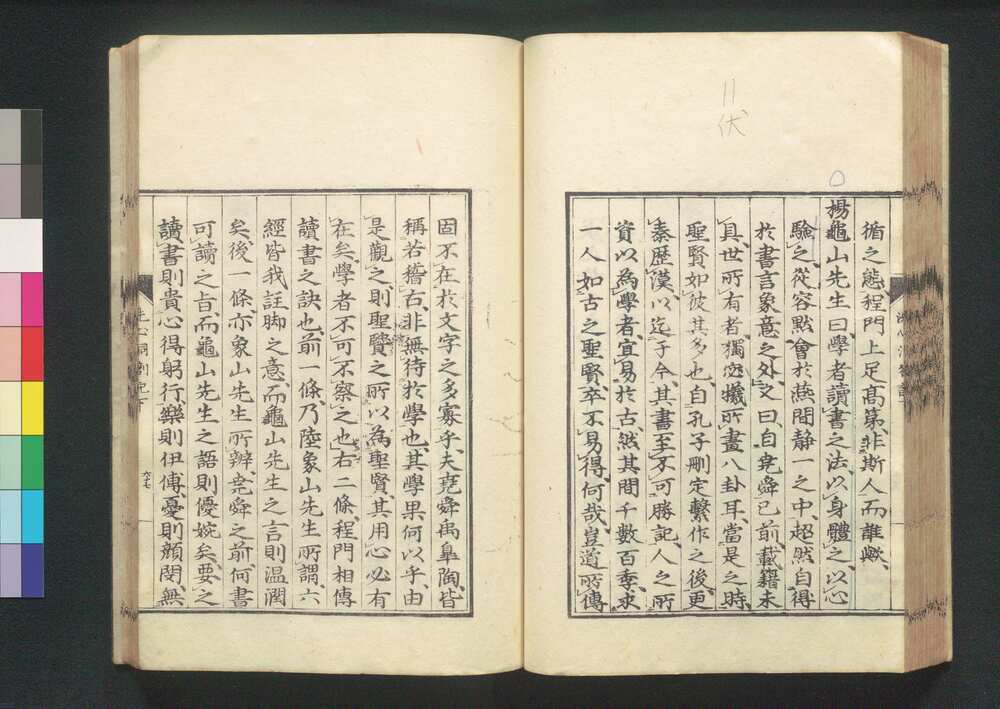 伏
循之態程門上足高第非斯人而誰歟
楊龜山先生曰學者讀書之法以身體之以心
驗之從容默會於燕閒靜一之中超然自得
於書言象意之外又曰自堯舜已前載籍未
具世所有者獨宓犧所畫八卦耳當是之時
聖賢如彼其多也自孔子刪定繫作之後更
秦歷漢以迄于今其書至不可勝記人之所
資以為學者宜易於古然其間千數百季求
一人如古之聖賢卒不易得何哉豈道所傳
固不在於文字之多寡乎夫堯舜禹皐陶皆
稱若稽古非無待於學也其學果何以乎由
是觀之則聖賢之所以為聖賢其用心必有
在矣學者不可不察之也右二條程門相傳
讀書之訣也前一條乃陸象山先生所謂六
經皆我註脚之意而龜山先生之言則温潤
矣後一條亦象山先生所辨堯舜之前何書
可讀之旨而龜山先生之語則優婉矣要之
讀書則貴心得躬行樂則伊傅憂則顔閔無
洗心洞劄記下
六十七